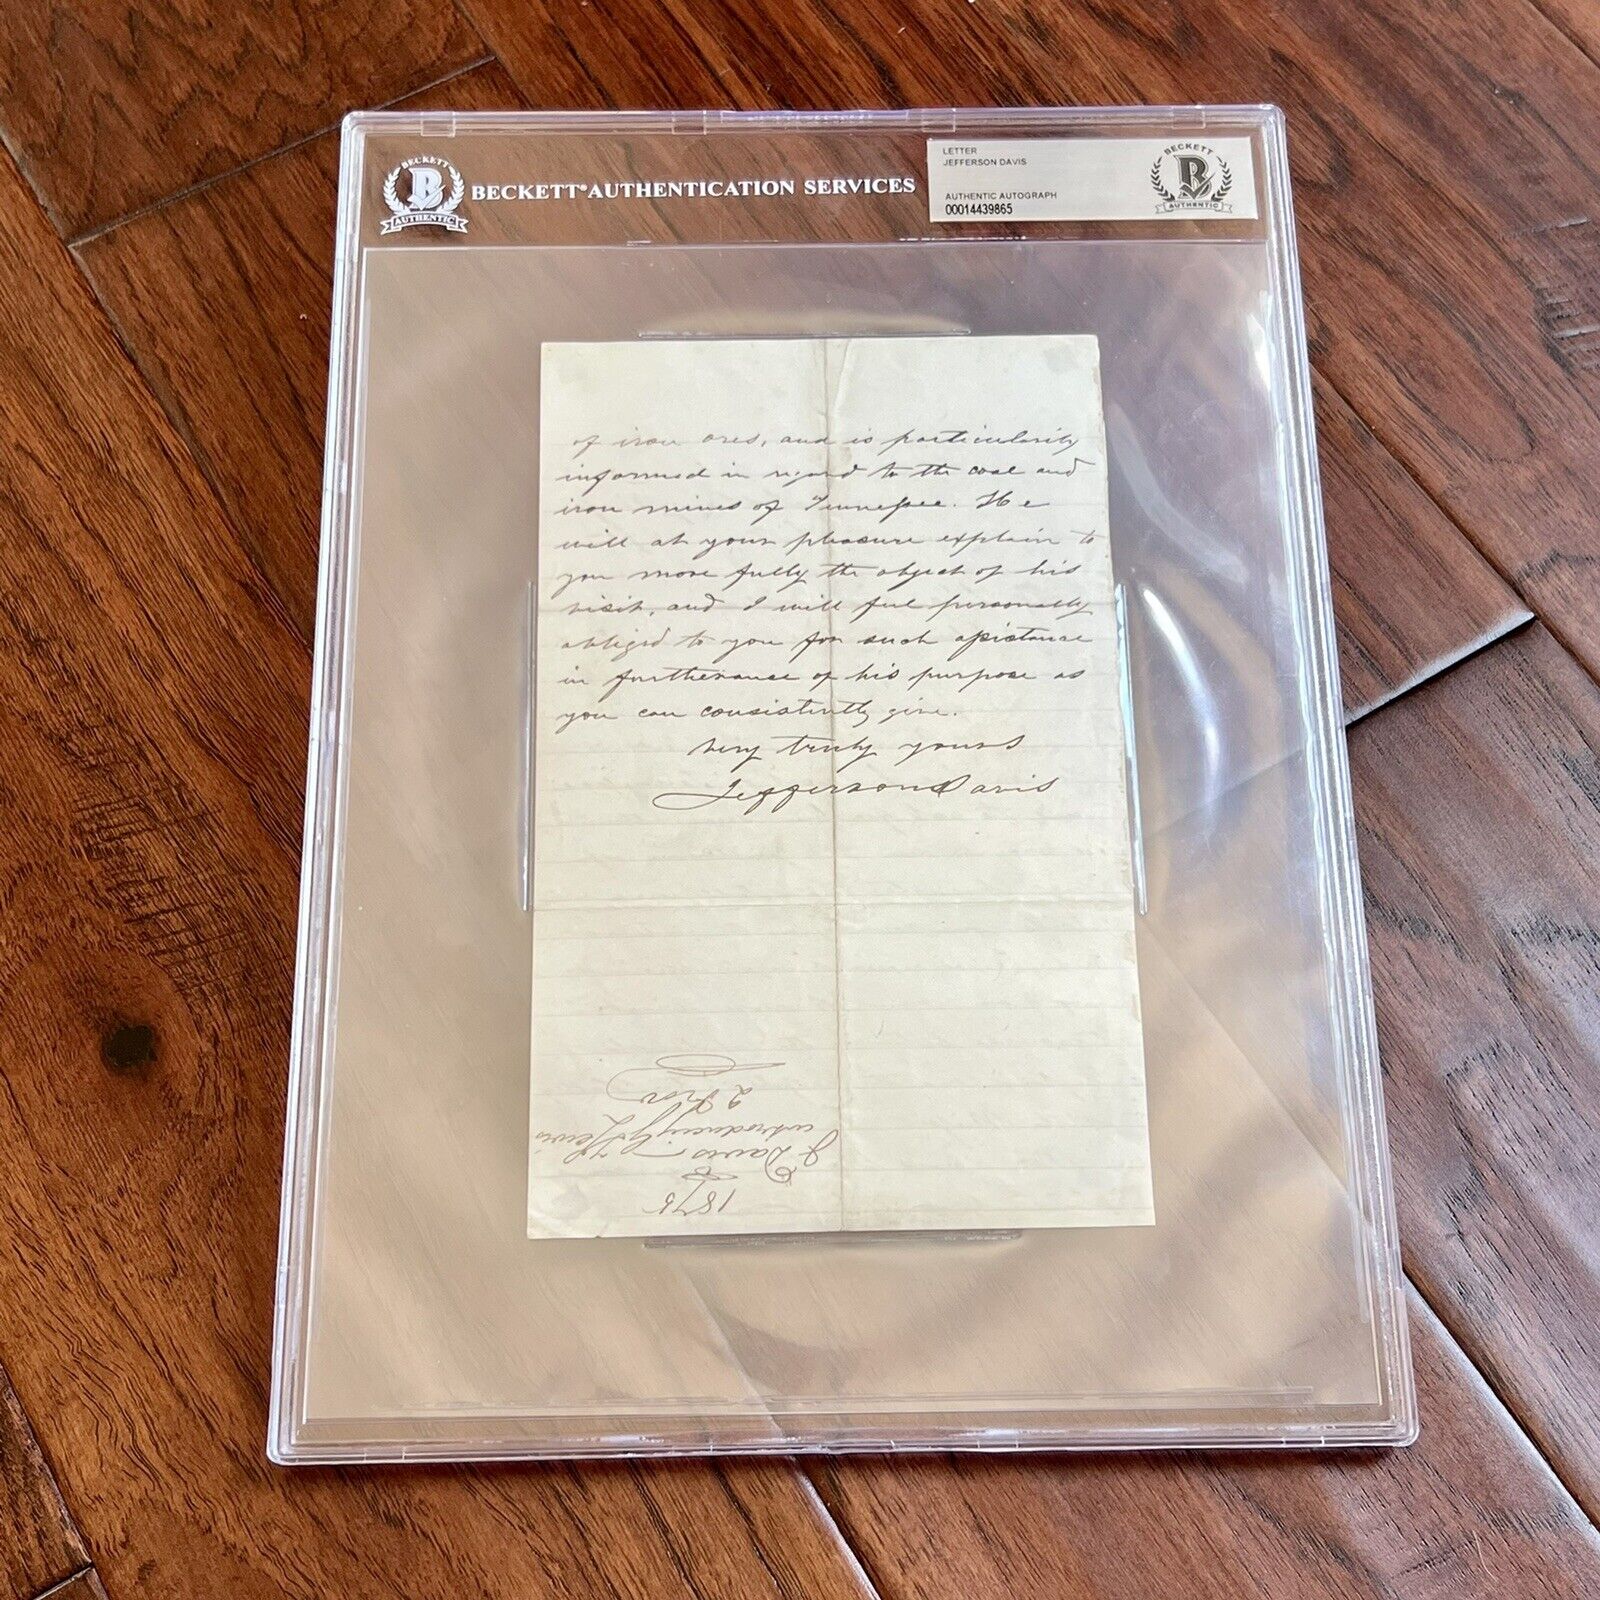 BECKETT
B
AUTHENTIC
BECKETT® AUTHENTICATION SERVICES
LETTER
JEFFERSON DAVIS
AUTHENTIC AUTOGRAPH
00014439865
BECKETT
B
AUTHENTIC
of iron ores, and is particularily
informed in regard to the coal and
iron mines of Tennessee. He
will at your pleasure explain to
you more fully the object of his
visit, and I will feel personally
obliged to you for such assistance
in furtherance of his purpose as
you can consistently give.
very truly yours
Jefferson Davis
1875
J Davis
introducing